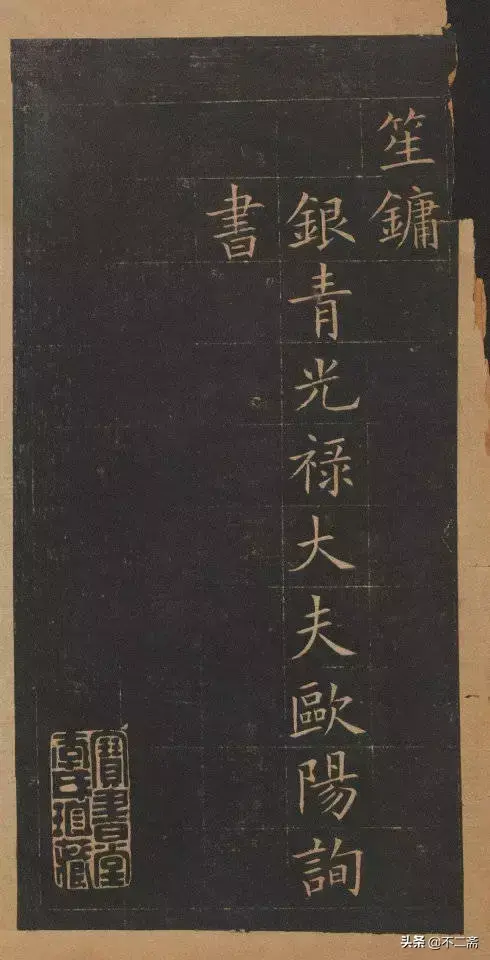 笙鏞
銀青光禄大夫歐陽詢
書
寶書堂
头条 @不二斋